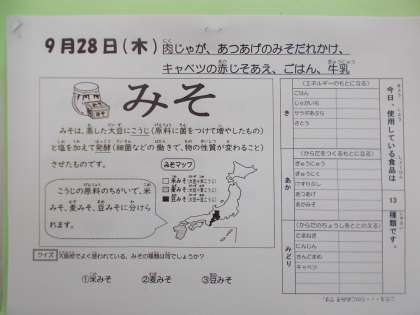 9月28日(木) 肉じゃが、あつあげのみそだれかけ、
キャベツの赤じそあえ、ごはん、牛乳
みそ
みそは、蒸した大豆にこうじ(原料に菌をつけて増やしたもの)
と塩を加えて発酵(細菌などの働きで、物の性質が変わること)
させたものです。
みそマップ
こうじの原料のちがいで、米
みそ、麦みそ、豆みそに分けら
れます。
米みそ
麦みそ
豆みそ
クイズ 大阪府でよく使われている、みその種類は何でしょうか?
①米みそ ②麦みそ ③豆みそ
今日、使用している食品は 13 種類です。
き
(エネルギーのもとになる)
ごはん
じゃがいも
サラダあぶら
さとう
あか
(からだをつくるもとになる)
ぎゅうにゅう
ぎゅうにく
けずりぶし
あつあげ
あかみそ
みどり
(からだのちょうしをととのえる)
たまねぎ
にんじん
さんどまめ
キャベツ